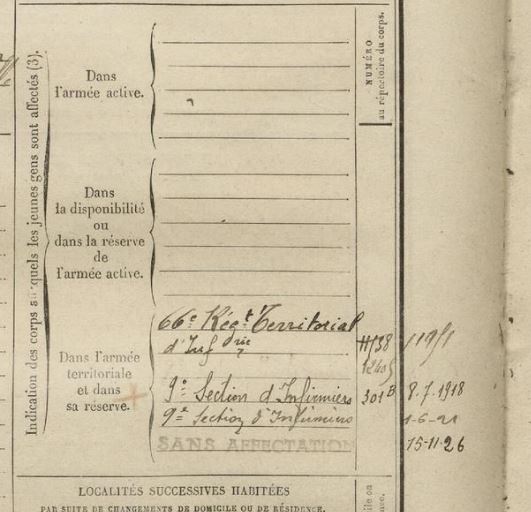 Indication des corps auxquels les jeunes gens sont affectés (3).
Dans
l'armée active.
NUMÉRO
au répertoire du corps.
Dans
la disponibilité
ou
dans la réserve
de
l'armée active.
Dans l'armée
territoriale
et dans
sa réserve.
66e Régt Territorial
d'Infrie
9e Section d'Infirmiers 301B 8.7.1918
9e Section d'Infirmiers 1-6-21
SANS AFFECTATION 15-11-26
LOCALITÉS SUCCESSIVES HABITÉES
PAR SUITE DE CHANGEMENTS DE DOMICILE OU DE RÉSIDENCE.